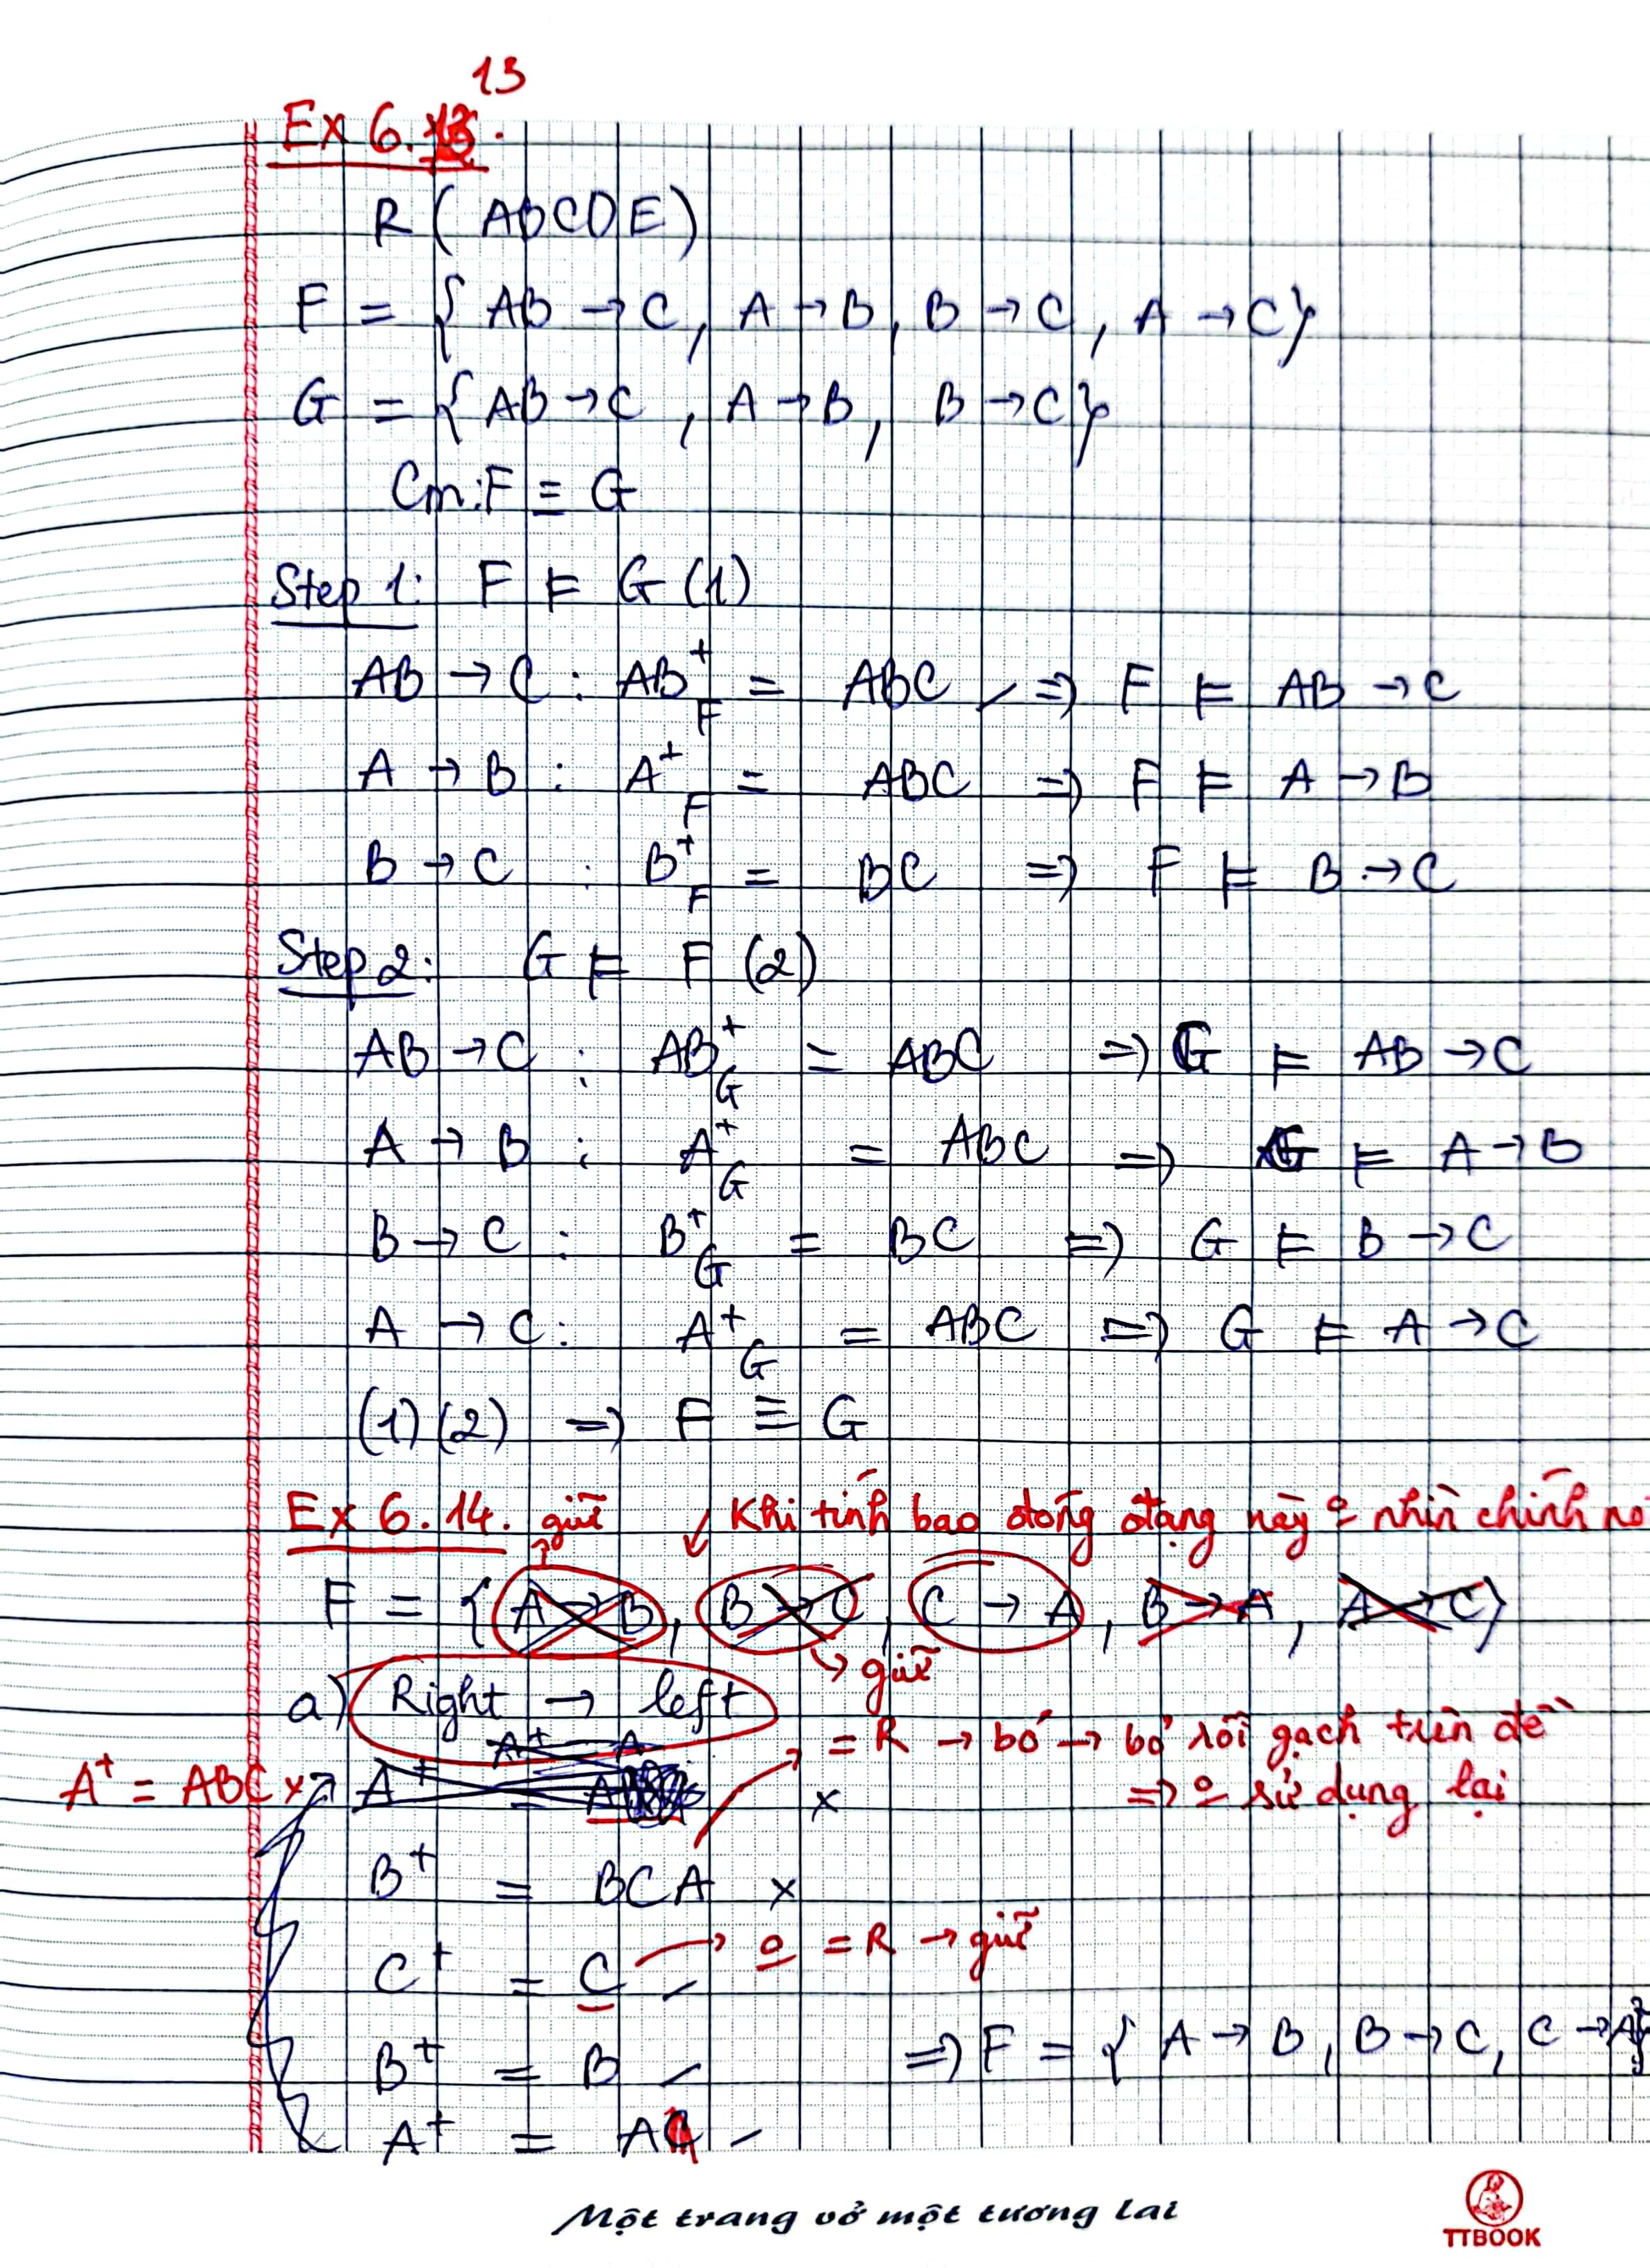 13
Ex 6.
R ( ABCDE )
F = { AB → C, A → B, B → C, A → C }
G = { AB → C, A → B, B → C }
Cm: F ≡ G
Step 1: F ⊨ G (1)
AB → C : AB⁺F = ABC ⇒ F ⊨ AB → C
A → B : A⁺F = ABC ⇒ F ⊨ A → B
B → C : B⁺F = BC ⇒ F ⊨ B → C
Step 2: G ⊨ F (2)
AB → C : AB⁺G = ABC ⇒ G ⊨ AB → C
A → B : A⁺G = ABC ⇒ G ⊨ A → B
B → C : B⁺G = BC ⇒ G ⊨ B → C
A → C : A⁺G = ABC ⇒ G ⊨ A → C
(1) (2) ⇒ F ≡ G
Ex 6.14. giữ ↙ Khi tính bao đóng đạng này o nhìn chính nó
F = { A → B, B → C, C → A, B → A, A → C }
↳ giữ
a) Right → left
= R → bỏ → bỏ rồi gạch trên đề
A⁺ = A
A⁺ = ABC x ↗ A⁺ = x ⇒ o sử dụng lại
B⁺ = BCA x
C⁺ = C → o = R → giữ
B⁺ = B ⇒ F = { A → B, B → C, C → A }
A⁺ = A
Một trang vở một tương lai
TTBOOK